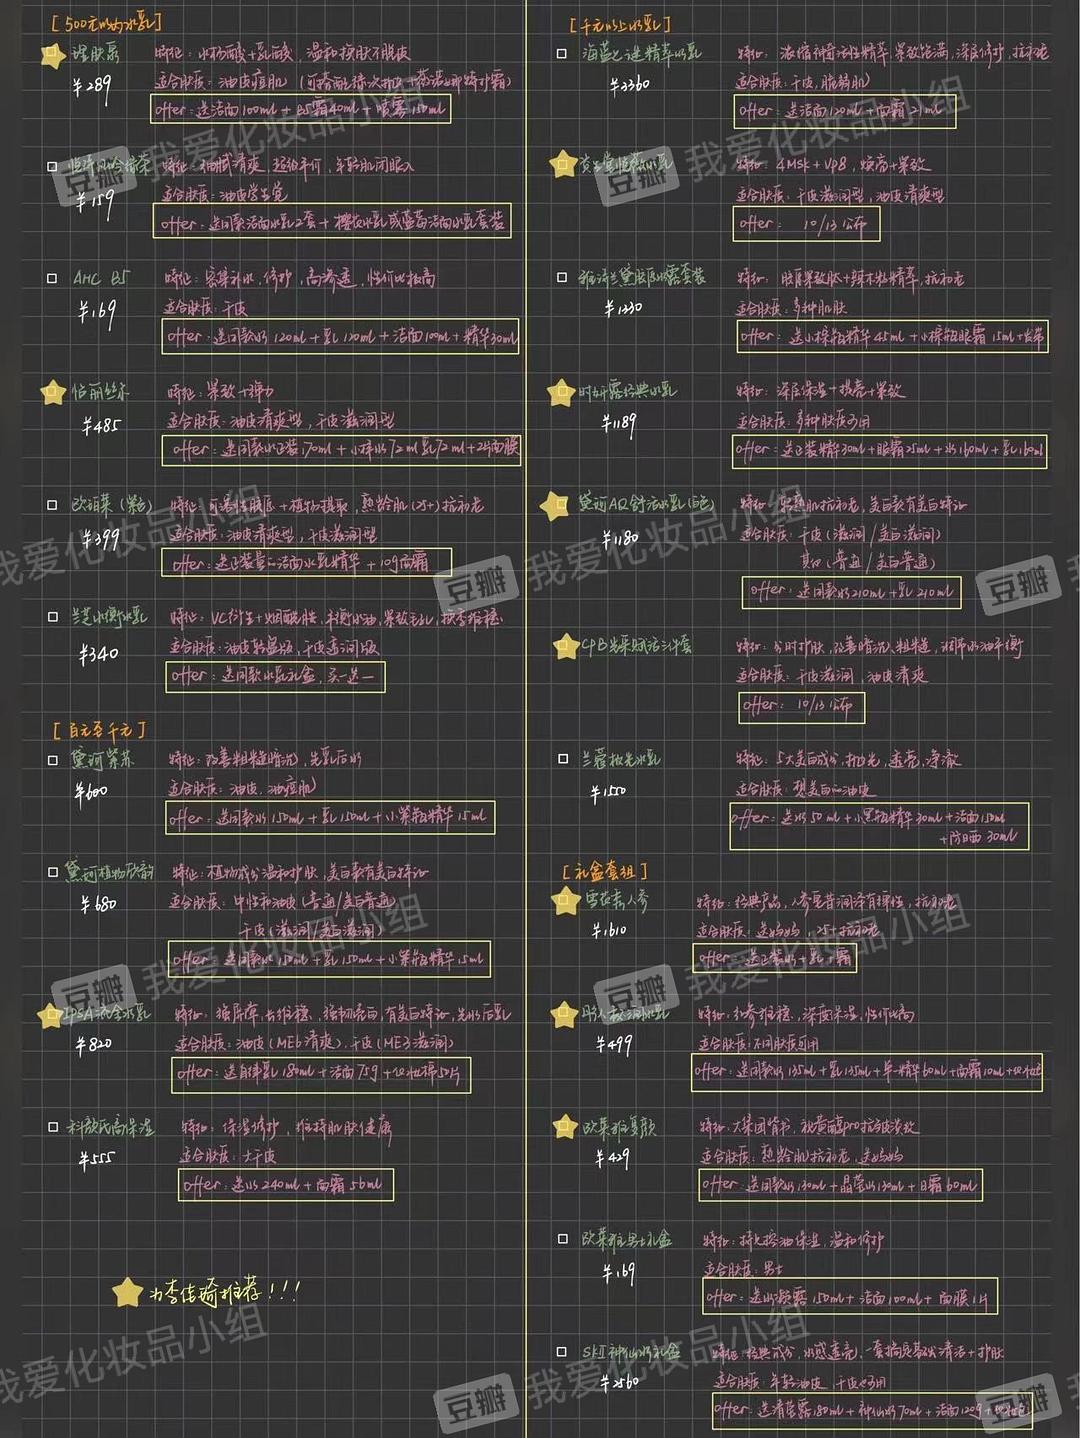 [500元以内水乳]
理肤泉
¥289
特征:水杨酸+乳酸,温和焕肤不脱皮
适合肤质:油皮痘肌
offer:送洁面100ml+B5霜40ml+喷雾150ml
¥159
特征:细腻清爽,超级平价,年轻肌闭眼入
适合肤质:油皮学生党
offer:送同款洁面水乳2套+樱花水乳或蓝莓洁面水乳套装
AHC B5
¥169
特征:密集补水,修护,高渗透,性价比极高
适合肤质:干皮
offer:送同款水120ml+乳120ml+洁面100ml+精华30ml
怡丽丝尔
¥485
特征:紧致+弹力
适合肤质:油皮清爽型,干皮滋润型
offer:送同款水正装170ml+小样水72ml乳72ml+2片面膜
欧珀莱(紫色)
¥399
特征:可溶性胶原+植物提取,熟龄肌(25+)抗初老
适合肤质:油皮清爽型,干皮滋润型
offer:送正装量的洁面水乳精华+10g面霜
兰芝水衡水乳
¥340
特征:VC衍生+烟酰胺,平衡水油,紧致毛孔,换季维稳
适合肤质:油皮轻盈版,干皮高润版
offer:送同款水乳礼盒,买一送一
[百元至千元]
黛珂紫苏
¥600
特征:改善粗糙暗沉,先乳后水
适合肤质:油皮,油痘肌
offer:送同款水150ml+乳150ml+小紫瓶精华15ml
黛珂植物欣韵
¥680
特征:植物成分温和护肤,美白款有美白特证
适合肤质:中性和油皮(普通/美白普通)
干皮(滋润/美白滋润)
offer:送同款水150ml+乳150ml+小紫瓶精华15ml
IPSA流金水乳
¥820
特征:强屏障,长维稳,强韧亮白,有美白特证,先水后乳
适合肤质:油皮(ME6清爽),干皮(ME3滋润)
offer:送自律乳180ml+洁面75g+化妆棉50片
科颜氏高保湿
¥555
特征:保湿修护,维持肌肤健康
适合肤质:大干皮
offer:送水240ml+面霜56ml
为李佳琦推荐!!!
[千元以上水乳]
海蓝之谜精华水乳
¥2360
特征:浓缩神奇活性精华,紧致饱满,深层修护,抗初老
适合肤质:干皮,脆弱肌
offer:送洁面120ml+面霜21ml
特征:4MSK+VP8,焕亮+紧致
适合肤质:干皮滋润型,油皮清爽型
offer:10/13公布
雅诗兰黛胶原水露套装
¥1230
适合肤质:多种肌肤
offer:送小棕瓶精华45ml+小棕瓶眼霜15ml+发带
时妍露经典水乳
¥1189
特征:深层保湿+提亮+紧致
适合肤质:多种肤质可用
offer:送正装精华30ml+眼霜25ml+水160ml+乳160ml
黛珂AQ舒活水乳(白色)
¥1180
适合肤质:干皮(滋润/美白滋润)
其他(普通/美白普通)
offer:送同款水210ml+乳210ml
CPB光采赋活三件套
特征:分时护肤,改善暗沉、粗糙,调节水油平衡
适合肤质:干皮滋润,油皮清爽
offer:10/13公布
兰蔻极光水乳
¥1550
特征:5大美白成分,抛光,透亮,净澈
适合肤质:想美白的油皮
offer:送水50ml+小黑瓶精华30ml+洁面150ml
+防晒30ml
[礼盒套组]
雪花秀人参
¥1610
适合肤质:送妈妈,25+抗初老
offer:送正装水+乳+霜
¥499
特征:红参维稳,深度保湿,性价比高
适合肤质:不同肤质可用
offer:送同款水135ml+乳135ml+单一精华60ml+面霜10ml+化妆包
欧莱雅复颜
¥429
特征:大集团背书,玻黄醇pro抗皱淡纹
适合肤质:熟龄肌抗初老,送妈妈
offer:送同款水130ml+晶莹水130ml+日霜60ml
欧莱雅男士礼盒
¥169
特征:持久控油保湿,温和修护
适合肤质:男士
offer:送水凝露150ml+洁面100ml+面膜1片
SKII神仙水礼盒
¥2560
特征:经典成分,水感透亮,一套搞定基础清洁+护肤
适合肤质:年轻油皮,干皮也可用
offer:送清莹露180ml+神仙水70ml+洁面120g+化妆包
豆瓣 我爱化妆品小组